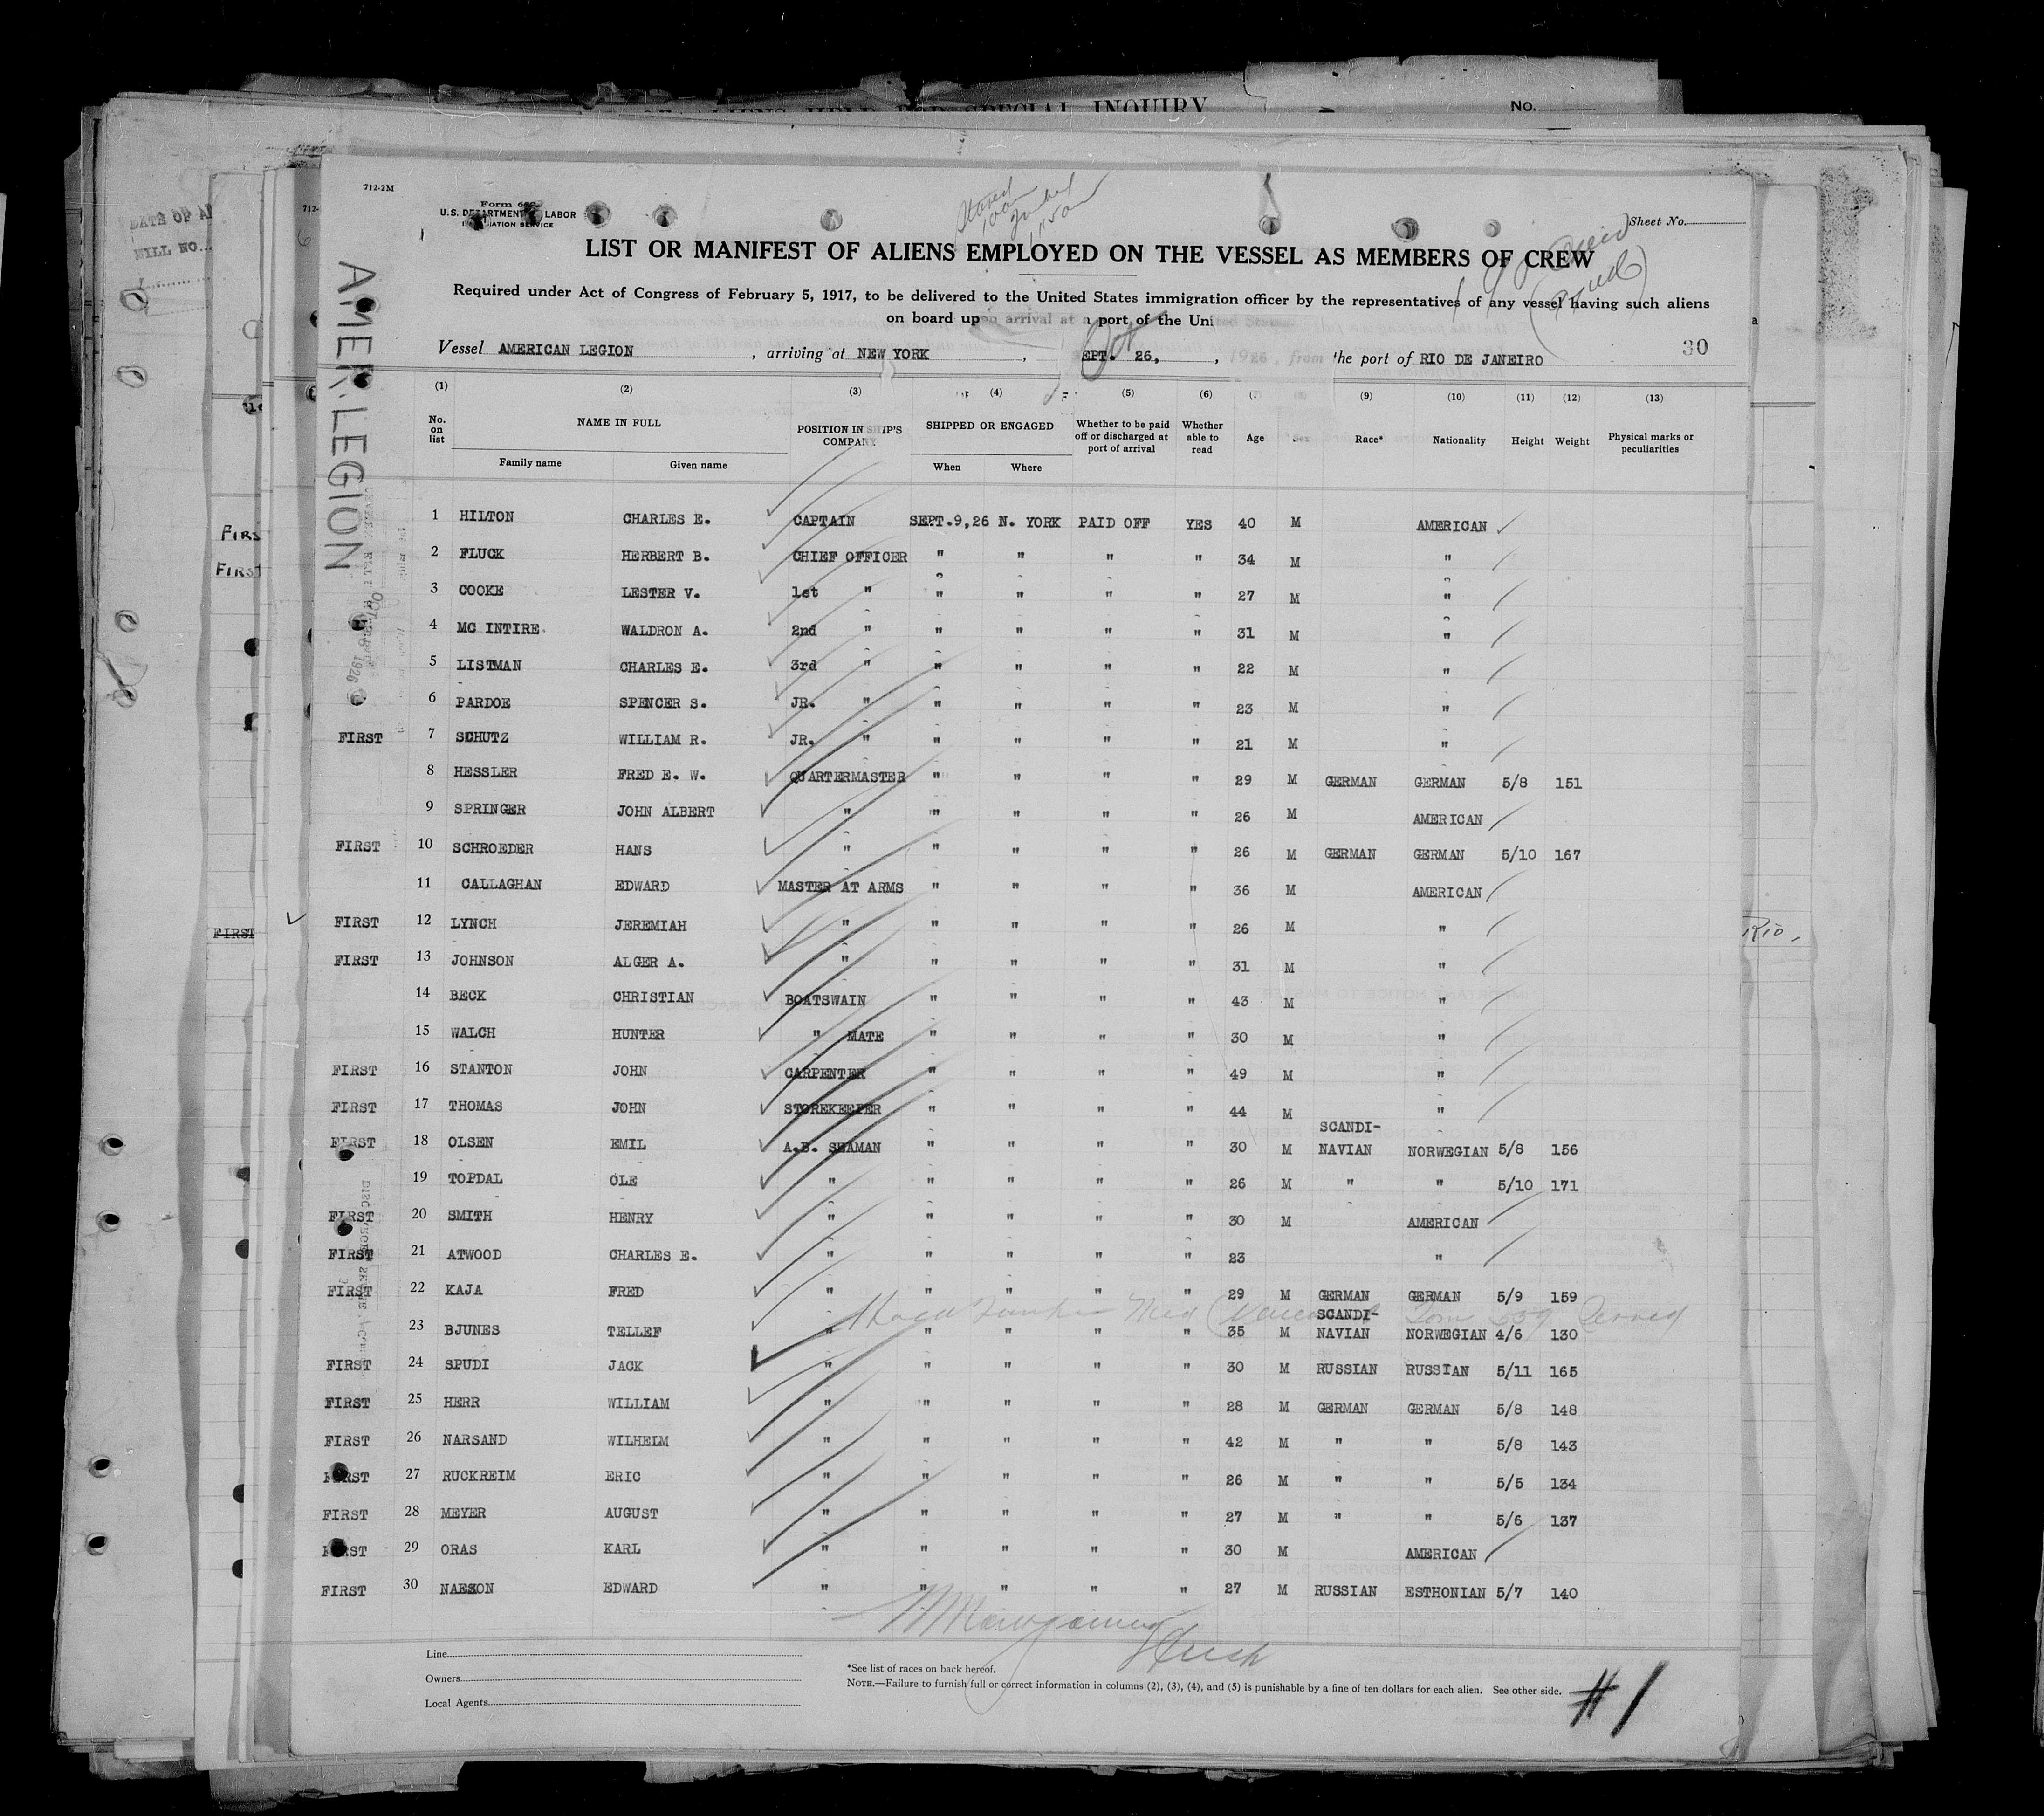 ALIENS HELD FOR SPECIAL INQUIRY
No.
712-2M
U.S. DEPARTMENT LABOR
Sheet No.
LIST OR MANIFEST OF ALIENS EMPLOYED ON THE VESSEL AS MEMBERS OF CREW
Required under Act of Congress of February 5, 1917, to be delivered to the United States immigration officer by the representatives of any vessel having such aliens
on board upon arrival at a port of the United States
Vessel AMERICAN LEGION, arriving at NEW YORK, Oct SEPT. 26, 1926, from the port of RIO DE JANEIRO 30
AMER. LEGION
(1) (2) (3) (4) (5) (6) (7) (8) (9) (10) (11) (12) (13)
No. on list NAME IN FULL POSITION IN SHIP'S COMPANY SHIPPED OR ENGAGED Whether to be paid off or discharged at port of arrival Whether able to read Age Sex Race* Nationality Height Weight Physical marks or peculiarities
Family name Given name When Where
1 HILTON CHARLES E. CAPTAIN SEPT.9,26 N. YORK PAID OFF YES 40 M AMERICAN
2 FLUCK HERBERT B. CHIEF OFFICER " " " " 34 M "
3 COOKE LESTER V. 1st " " " " " 27 M "
4 MC INTIRE WALDRON A. 2nd " " " " " 31 M "
5 LISTMAN CHARLES E. 3rd " " " " " 22 M "
6 PARDOE SPENCER S. JR. " " " " " 23 M "
FIRST 7 SCHUTZ WILLIAM R. JR. " " " " " 21 M "
8 HESSLER FRED E. W. QUARTERMASTER " " " " 29 M GERMAN GERMAN 5/8 151
9 SPRINGER JOHN ALBERT " " " " " 26 M AMERICAN
FIRST 10 SCHROEDER HANS " " " " " 26 M GERMAN GERMAN 5/10 167
11 CALLAGHAN EDWARD MASTER AT ARMS " " " " 36 M AMERICAN
FIRST 12 LYNCH JEREMIAH " " " " " 26 M "
FIRST 13 JOHNSON ALGER A. " " " " " 31 M "
14 BECK CHRISTIAN BOATSWAIN " " " " 43 M "
15 WALCH HUNTER " MATE " " " " 30 M "
FIRST 16 STANTON JOHN CARPENTER " " " " 49 M "
FIRST 17 THOMAS JOHN STOREKEEPER " " " " 44 M "
FIRST 18 OLSEN EMIL A.B. SEAMAN " " " " 30 M SCANDI-NAVIAN NORWEGIAN 5/8 156
19 TOPDAL OLE " " " " " 26 M " " 5/10 171
FIRST 20 SMITH HENRY " " " " " 30 M AMERICAN
FIRST 21 ATWOOD CHARLES E. " " " " " 23 "
FIRST 22 KAJA FRED " " " " " 29 M GERMAN GERMAN 5/9 159
23 BJUNES TELLEF " " " " " 35 M SCANDI-NAVIAN NORWEGIAN 4/6 130
FIRST 24 SPUDI JACK " " " " " 30 M RUSSIAN RUSSIAN 5/11 165
FIRST 25 HERR WILLIAM " " " " " 28 M GERMAN GERMAN 5/8 148
FIRST 26 NARSAND WILHELM " " " " " 42 M " " 5/8 143
FIRST 27 RUCKREIM ERIC " " " " " 26 M " " 5/5 134
FIRST 28 MEYER AUGUST " " " " " 27 M " " 5/6 137
FIRST 29 ORAS KARL " " " " " 30 M AMERICAN
FIRST 30 NAESON EDWARD " " " " " 27 M RUSSIAN ESTHONIAN 5/7 140
Line
Owners
Local Agents
*See list of races on back hereof.
NOTE.—Failure to furnish full or correct information in columns (2), (3), (4), and (5) is punishable by a fine of ten dollars for each alien. See other side.
#1
FIRST
Rio.